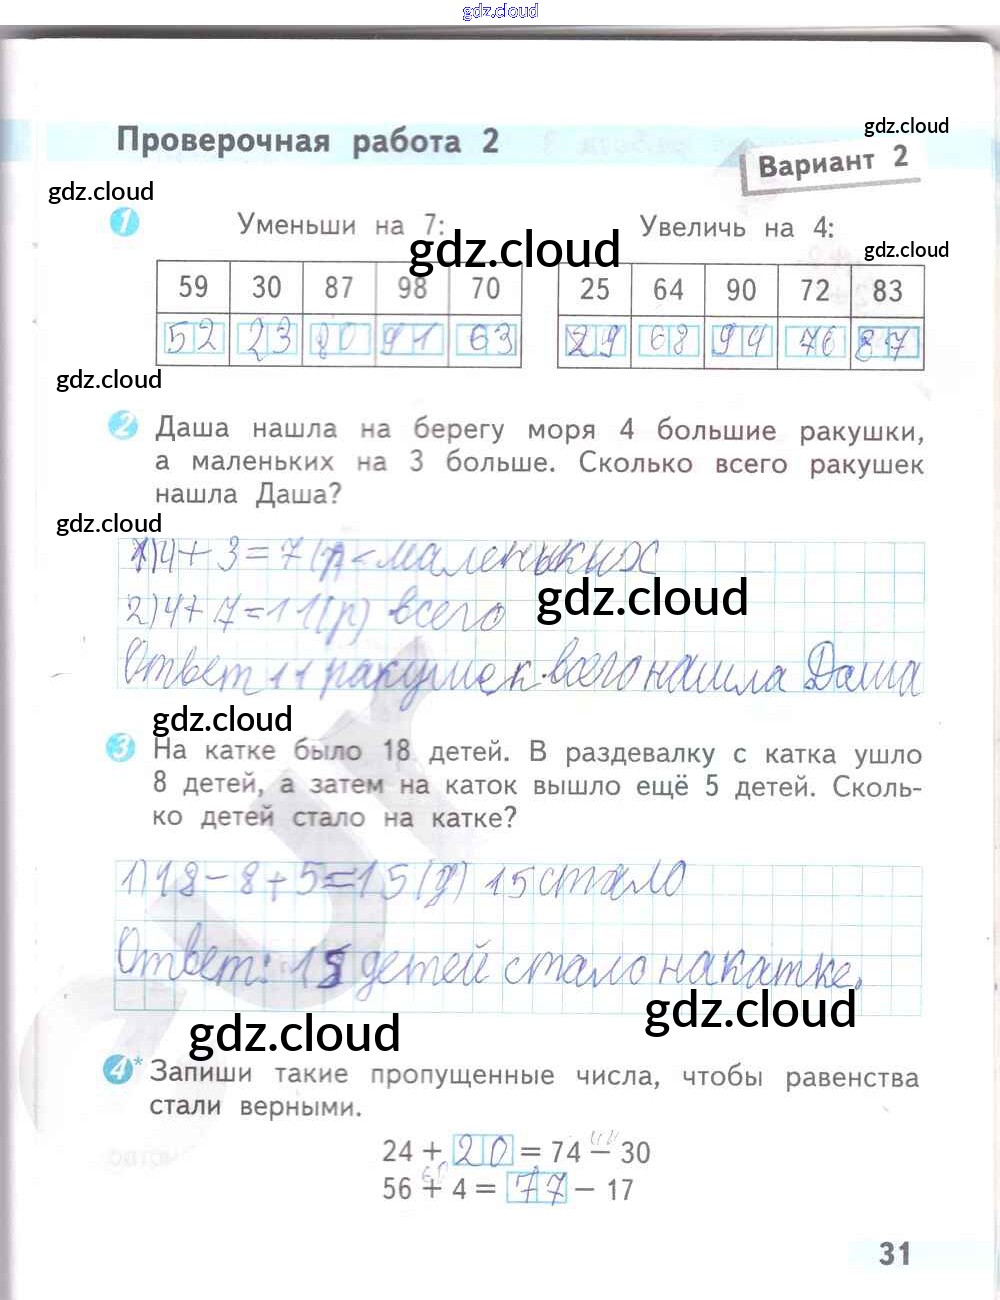 gdz.cloud
Проверочная работа 2
gdz.cloud
Вариант 2
gdz.cloud
1 Уменьши на 7: Увеличь на 4:
gdz.cloud
gdz.cloud
59 30 87 98 70 25 64 90 72 83
52 23 80 91 63 29 68 94 76 87
gdz.cloud
2 Даша нашла на берегу моря 4 большие ракушки,
а маленьких на 3 больше. Сколько всего ракушек
нашла Даша?
gdz.cloud
1)4+3=7(р)-маленьких
2)4+7=11(р) всего
gdz.cloud
Ответ 11 ракушек всего нашла Даша
gdz.cloud
3 На катке было 18 детей. В раздевалку с катка ушло
8 детей, а затем на каток вышло ещё 5 детей. Сколь-
ко детей стало на катке?
1)18-8+5=15(д) 15 стало
Ответ: 15 детей стало на катке.
gdz.cloud
gdz.cloud
4* Запиши такие пропущенные числа, чтобы равенства
стали верными.
44
24 + 20 = 74 − 30
60
56 + 4 = 77 − 17
31